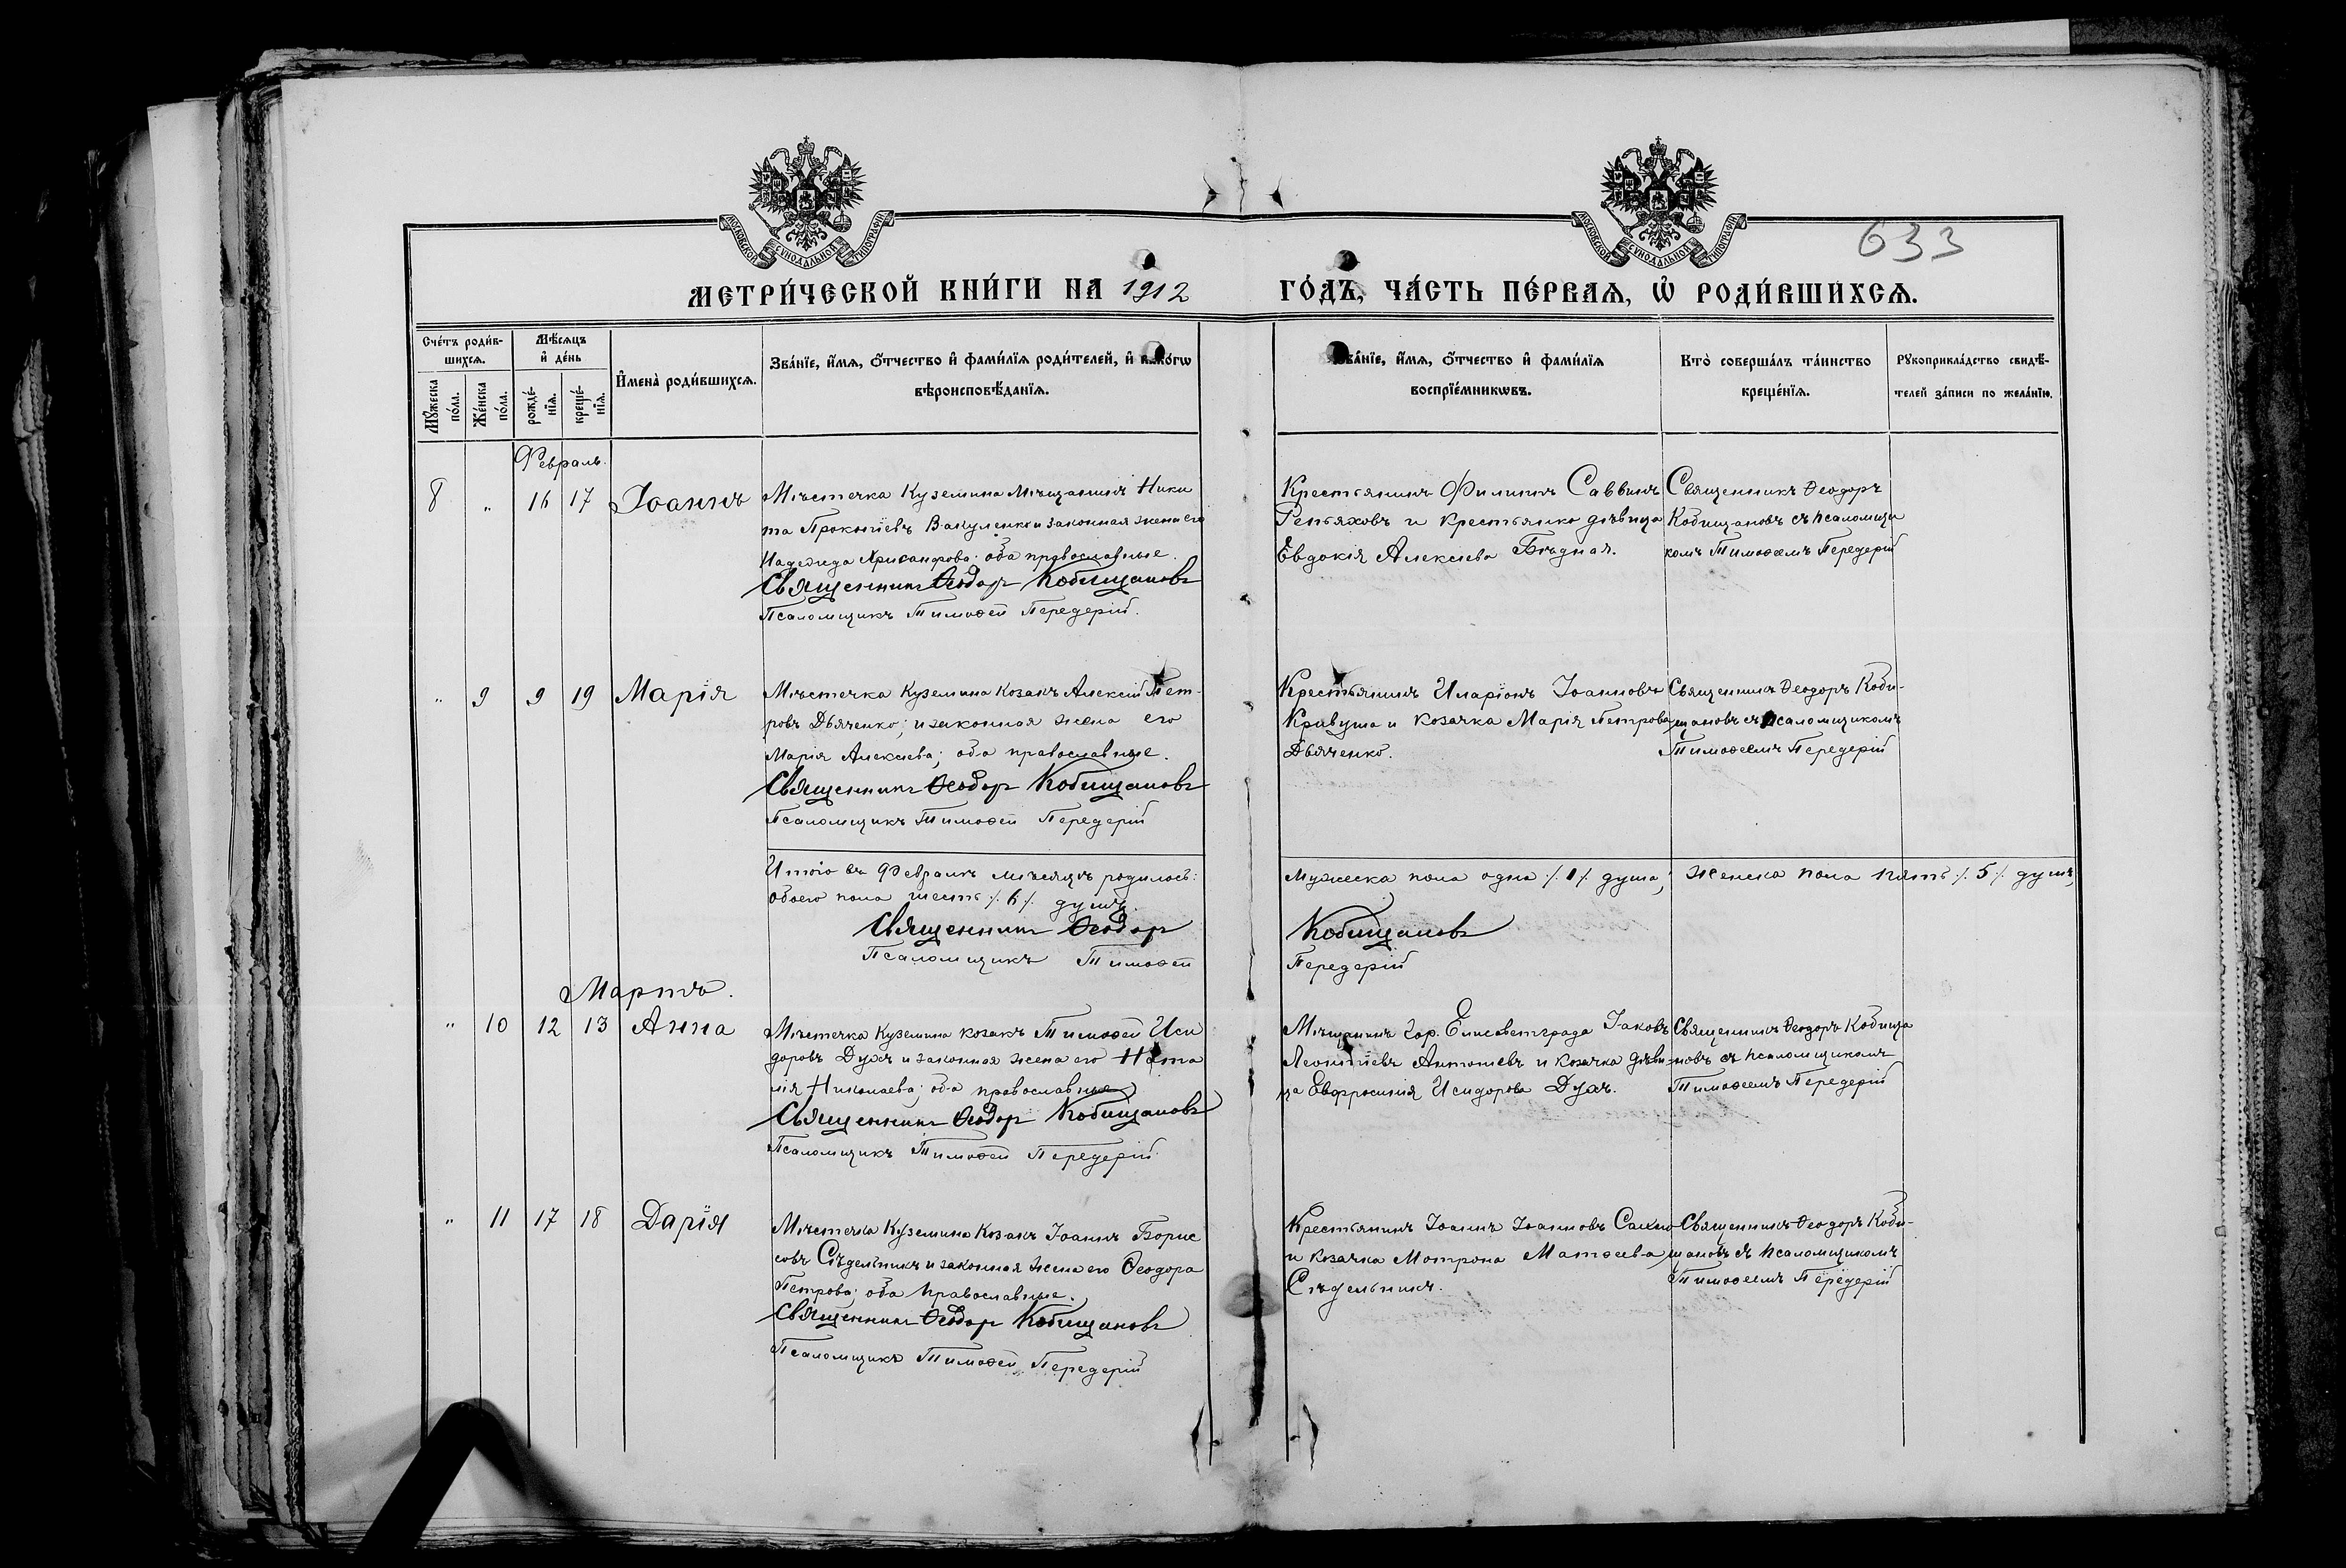 МОСКОВСКОЙ СУНОДАЛЬНОЙ ТИПОГРАФІИ
МОСКОВСКОЙ СУНОДАЛЬНОЙ ТИПОГРАФІИ
633
МЕТРИ́ЧЕСКОЙ КНИ́ГИ НА 1912 ГО́ДЪ, ЧА́СТЬ ПЕ́РВАѦ, Ѡ҆ РОДИ́ВШИХСѦ.
Сче́тъ роди́в-
шихсѧ.
Мꙋ́жеска
по́ла.
Же́нска
по́ла.
Мѣ́сѧцъ
и҆ де́нь
рожде́-
нїѧ.
креще́-
нїѧ.
И҆мена̀ роди́вшихсѧ.
Зва́нїе, и҆́мѧ, ѻ҆́тчество и҆ фами́лїѧ роди́телей, и҆ како́гѡ
вѣроисповѣ́данїѧ.
Зва́нїе, и҆́мѧ, ѻ҆́тчество и҆ фами́лїѧ
воспрїе́мникѡвъ.
Кто̀ соверша́лъ та́инство
креще́нїѧ.
Рꙋкоприкла́дство свидѣ́-
телей за́писи по жела́нїю.
Февраль.
8 „ 16 17 Іоаннъ
Мѣстечка Куземина мѣщанинъ Ники
та Прокопіевъ Вакуленко и законная жена его
Надежда Хрисанфова; оба православные.
Священникъ Ѳеодоръ Кобищановъ
Псаломщикъ Тимоѳей Передерій.
Крестьянинъ Филиппъ Саввинъ
Репьяховъ и крестьянка дѣвица
Евдокія Алексіева Бѣдная.
Священникъ Ѳеодоръ
Кобищановъ съ псаломщи
комъ Тимоѳеемъ Передерій
„ 9 9 19 Марія
Мѣстечка Куземина козакъ Алексій Пет-
ровъ Дьяченко; и законная жена его
Марія Алексіева; оба православные.
Священникъ Ѳеодоръ Кобищановъ
Псаломщикъ Тимоѳей Передерій
Крестьянинъ Иларіонъ Іоанновъ
Кривуша и козачка Марія Петрова
Дьяченко.
Священникъ Ѳеодоръ Коби-
щановъ съ псаломщикомъ
Тимоѳеемъ Передерій
Итого въ Февралѣ мѣсяцѣ родилось:
обоего пола шесть ⁒ 6 ⁒ душъ.
Мужеска пола одна ⁒ 1 ⁒ душа; женска пола пять ⁒ 5 ⁒ душъ,
Священникъ Ѳеодоръ Кобищановъ
Псаломщикъ Тимоѳей Передерій
Мартъ.
„ 10 12 13 Анна
Мѣстечка Куземина козакъ Тимоѳей Иси
доровъ Духъ и законная жена его Ната
лія Николаева; оба православные
Священникъ Ѳеодоръ Кобищановъ
Псаломщикъ Тимоѳей Передерій
Мѣщанинъ гор. Елисаветграда Іаковъ
Леонтіевъ Антоніевъ и козачка дѣви-
ца Евфросинія Исидорова Духъ.
Священникъ Ѳеодоръ Кобища
новъ съ псаломщикомъ
Тимоѳеемъ Передерій
„ 11 17 18 Дарія
Мѣстечка Куземина козакъ Іоаннъ Борис
совъ Сѣдельникъ и законная жена его Ѳеодора
Петрова; оба православные.
Священникъ Ѳеодоръ Кобищановъ
Псаломщикъ Тимоѳей Передерій
Крестьянинъ Іоаннъ Іоанновъ Сахно
и козачка Мотрона Матѳеева
Сѣдельникъ.
Священникъ Ѳеодоръ Коби-
щановъ съ псаломщикомъ
Тимоѳеемъ Передерій